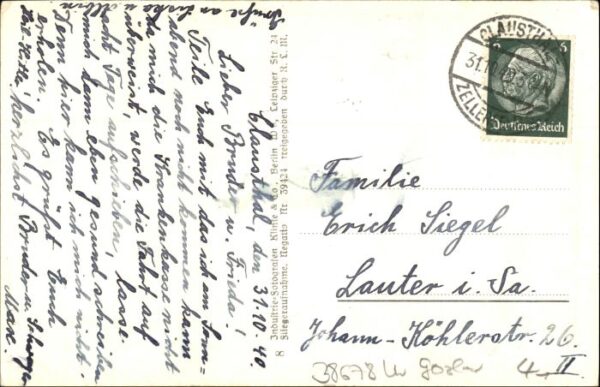 Clausthal, den 31.10.40.
Lieber Bruder u. Frieda!
Teile Euch mit das ich am Sonn-
abend noch nicht kommen kann
da mich die Krankenkasse nicht
überweist, werde die Fahrt auf
acht Tage aufschieben, lasse
mich dann eben gesund schreiben
Denn hier kann ich mich nicht
erholen. Es grüßt Euch
herzlichst Bruder u. Schwager
Max.
Grüße an
8 Industrie-Fotografen Klinke & Co., Berlin W 8, Leipziger Str 24
Fliegeraufnahme. Negativ Nr 39424 freigegeben durch R. L. M.
CLAUSTHAL
ZELLER
31.10.40
6 6
Deutsches Reich
Familie
Erich Siegel
Lauter i. Sa.
Johann-Köhlerstr. 26.
II
38678